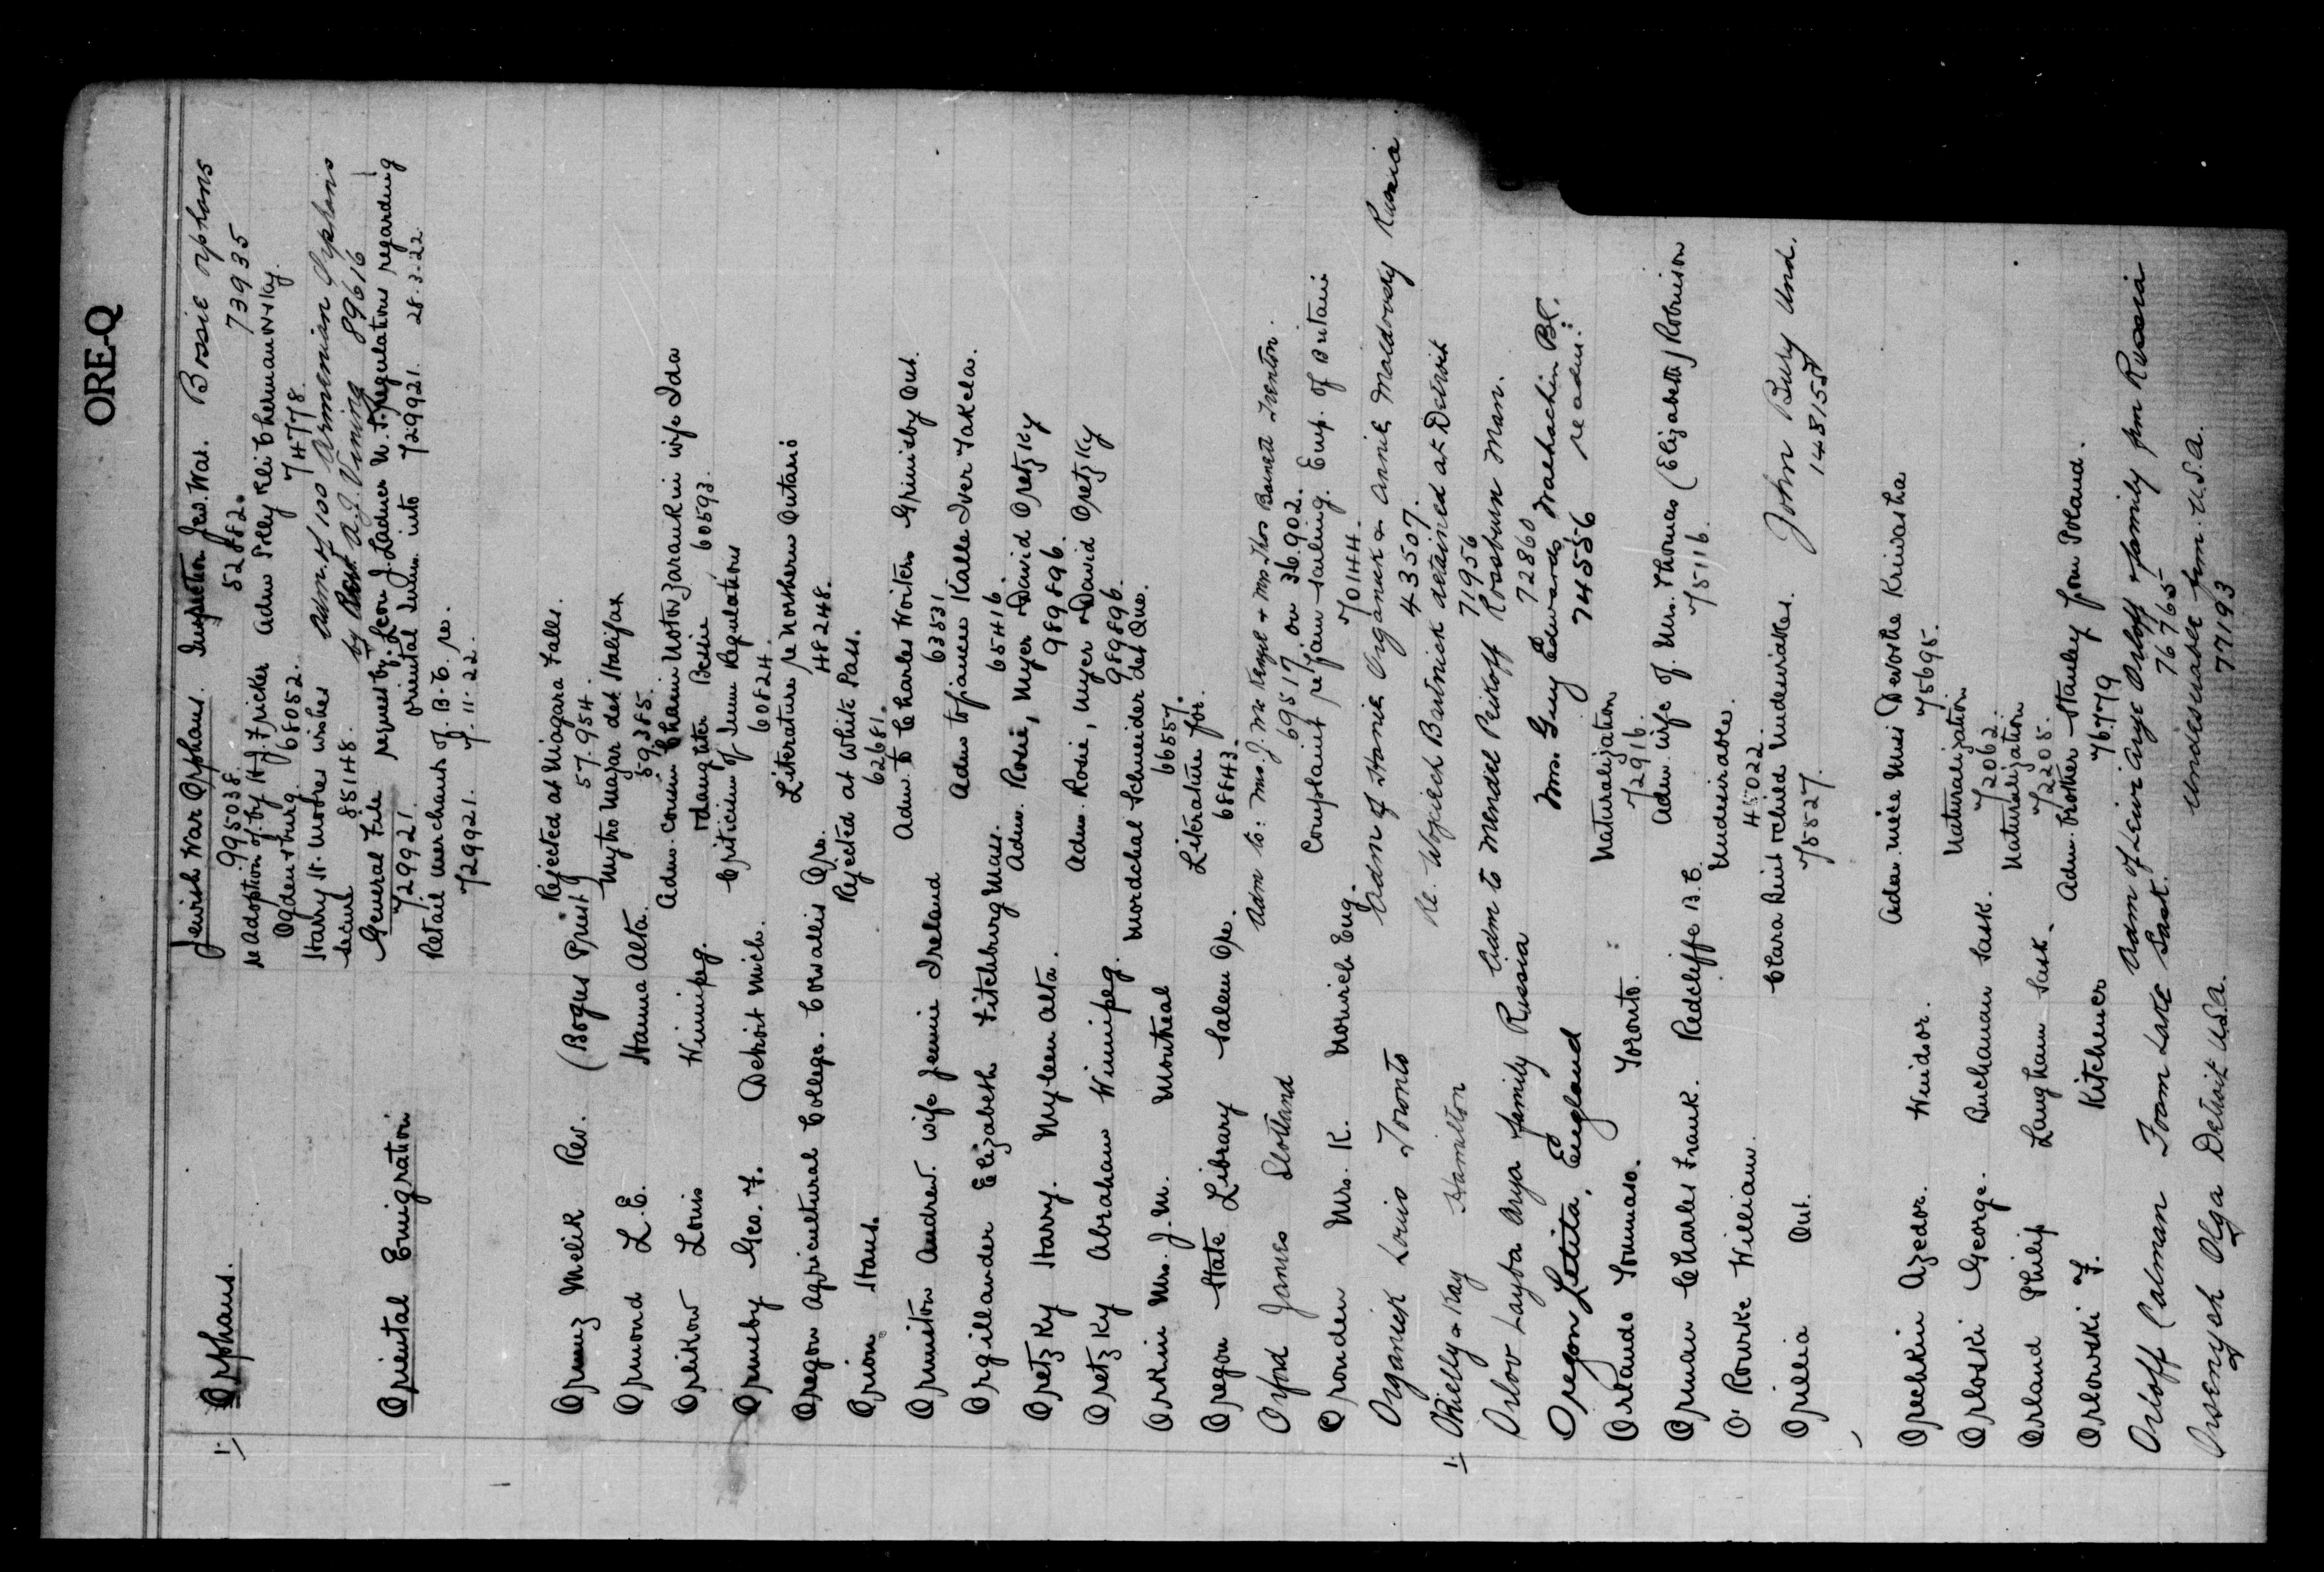 ORE-Q
1. Orphans. Jewish War Orphans. Inspection Jew. War. Bossie orphans
995038 52882. 73935
re Adoption of by H.J. Fricker Adm Polly Kli
Ogden & burg. 68052. 74778.
Harry H. Moores wishes Adm. of 100 Armenian Orphans
secure 85148. by A.J. Vining 89616
Oriental Emigration General File request by Leon J. Ladner M.P. regulations regarding
729921. oriental Imm. into 729921. 28.3.22
Retail Merchants of B.C. re.
729921. 7.11.22.
Melik Rev. (Bogus Priest) Rejected at Niagara Falls.
57.954.
Ormond L.E. Hanna Alta. Mytro Mazar det Halifax
59385.
Orlikow Louis Winnipeg. Adm. cousin Chaim Noton Zarankin wife Ida
& daughter Bessie 60593.
Ormsby Geo. F. Detroit Mich. Criticism of Imm Regulations
60824.
Oregon Agricultural College. Corvallis Ore. Literature re Northern Ontario
48248.
Orion Hans. Rejected at White Pass.
62681.
Ormiston Andrew wife Jennie Ireland Adm to Charles Hoiten Grimsby Ont.
63531
Orgillander Elizabeth Fitchburg Mass. Adm to fiancee Kalle Iver Takela.
65416.
Oretzky Harry. Myleen Alta. Adm. Rosie, Meyer & David Oretzky
989896.
Oretzky Abraham Winnipeg. Adm. Rosie, Meyer & David Oretzky
989896.
Orkin Mrs. J.M. Montreal Mordchal Schneider det Que.
66557.
Oregon State Library Salem Ore. Literature for.
68843.
Orford James Scotland Adm to: Mrs. J. McKenzie & Mrs Thos Barnett Trenton.
69517 on 36.902.
Oronden Mrs. K. Norwich Eng. Complaint re fam sailing. Emp. of Britain
70144.
Organick Louis Toronto Adm of Honia Organick & Annie Moldovsky Russia
43507.
1. ORielly & Kay Hamilton Re. Wojciech Bartnick detained at Detroit
71956
Orlov Layba Arya family Russia Adm to Mendel Peikoff Rossburn Man.
72860
Oregon Letita, England Mrs. Guy Edwards Walhachin BC.
74556 re adm:
Orlando Tommaso. Toronto. Naturalization
72916.
Orman Charles Frank. Redcliffe B.C. Adm. wife of. Mrs. Thomas (Elizabeth) Robinson
75116.
O'Rourke William. Undesirable.
45022.
Orillia Ont. Clara Reid & child Undesirables. John Bury Und.
75527. 148155
Orechkin Azedor. Windsor. Adm. niece Miss Dewosha Kriwasha
75695.
Orloski George. Buchanan Sask. Naturalization
72062.
Orland Philip Langham Sask. Naturalization
72205.
Orlowski F. Kitchener Adm. brother Stanley from Poland.
76779
Orloff Calman Foam Lake Sask. Adm of Leiwi Auze Orloff & family from Russia
76765
Orsenyak Olga Detroit U.S.A. Undesirable from U.S.A.
77193